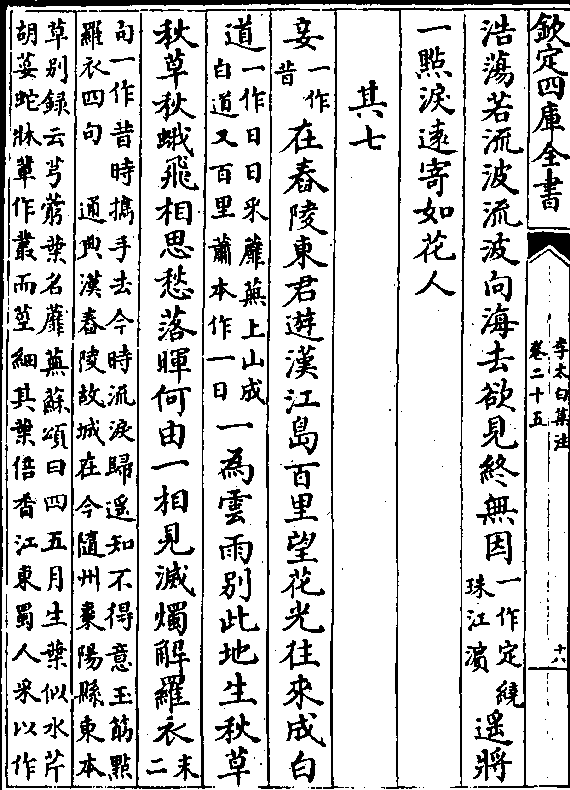 欽定四庫全書
李太白集注
卷二十五
十六
浩蕩若流波流波向海去欲見終無因一作定繞珠江濵遥將
一點淚遠寄如花人
其七
妾一作昔在舂陵東君遊漢江島百里望花光往來成白
道一作日日采蘼蕪上山成白道又百里蕭本作一日一為雲雨別此地生秋草
秋草秋蛾飛相思愁落暉何由一相見滅燭解羅衣末二
句一作昔時擕手去今時流淚歸遥知不得意玉筯點
羅衣四句　通典漢舂陵故城在今隨州棗陽縣東本
草别録云芎藭葉名蘼蕪蘇頌曰四五月生葉似水芹
胡荽蛇牀軰作叢而莖細其葉倍香江東蜀人采以作